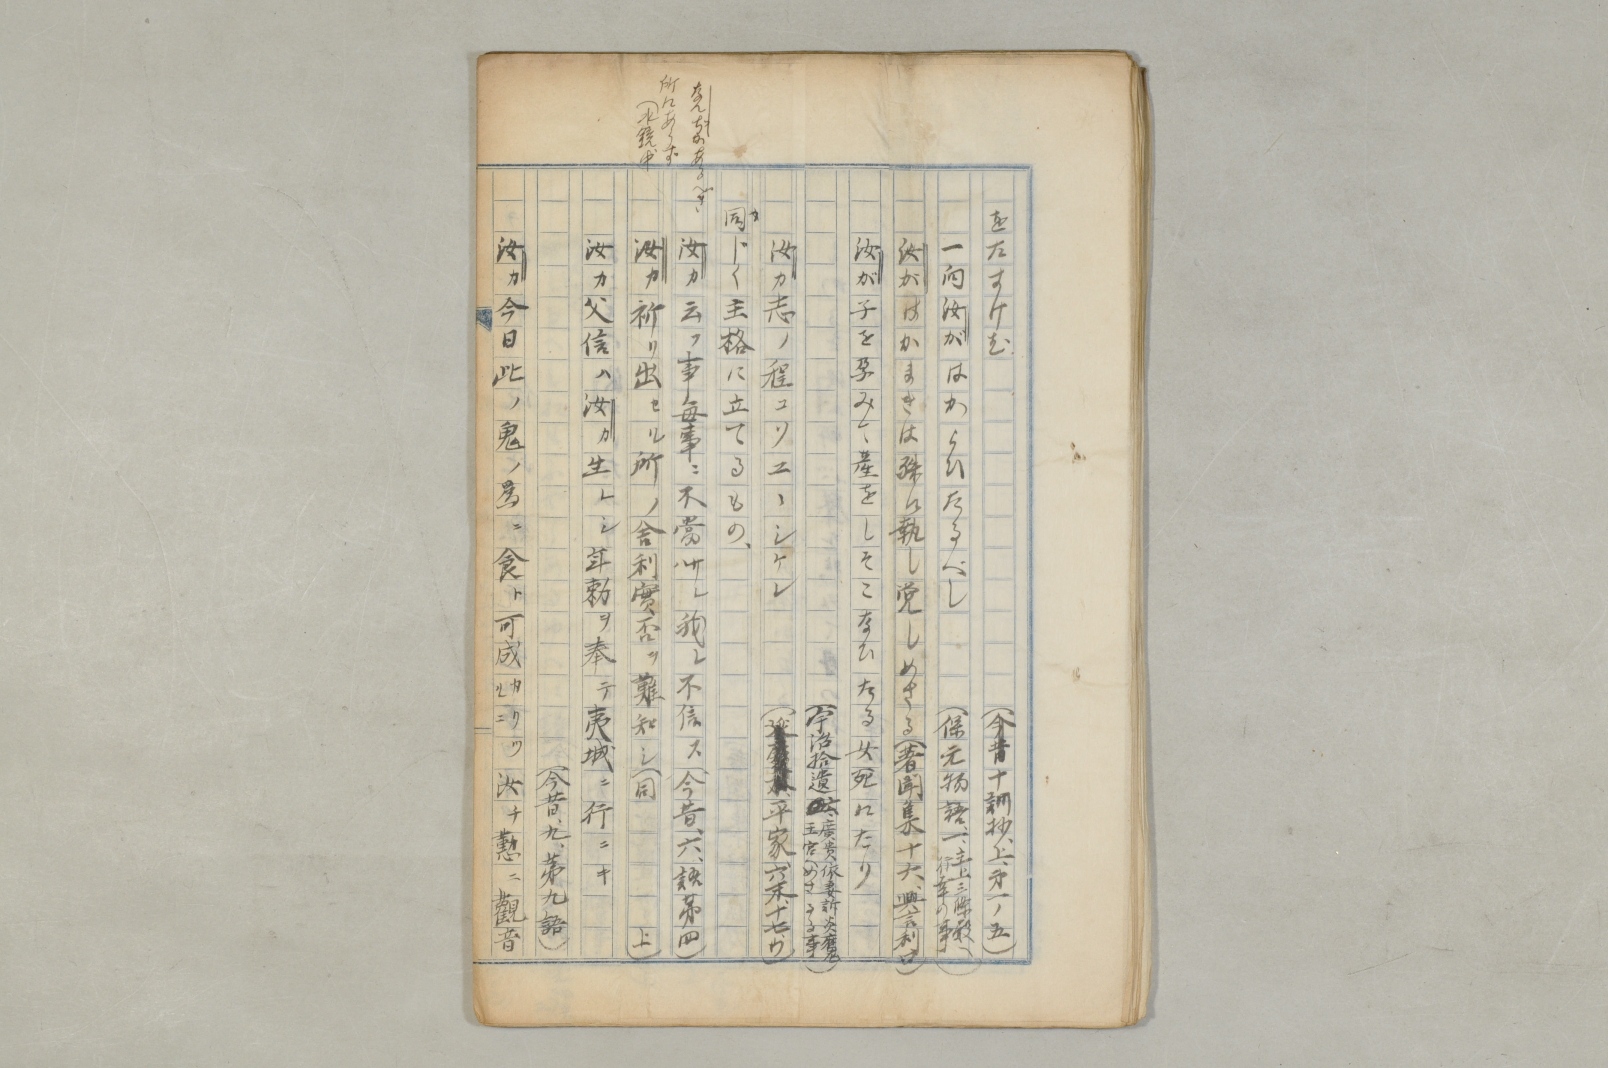 をたすけむ
（今昔十訓抄、上、第一ノ五）
一向汝がはからひたるべし
（保元物語、一、主上三條殿へ行幸の事）
汝がはかまきは殊に執し覚しめさる（著聞集十六、興言利口）
汝が子を孕みて産をしそこなひたる女死にたり
（宇治拾遺六、廣貴依妻訴炎魔王宮へめさるる事）
汝カ志ノ程コソエヽシケレ
平家（六末、十七ウ）
同じく主格に立てるもの、
カ
汝カ云フ事毎事ニ不當サレハ我レ不信ス（今昔、六、語第四）
汝カ祈リ出セル所ノ舎利實否ヲ難知シ（同上）
汝カ父信ハ汝カ生レシ年勅ヲ奉テ夷城ニ行ニキ
（今昔、九、第九語）
汝カ今日此ノ鬼ノ為ニ食ト可成カリツルニ汝チ懃ニ觀音
なんぢがあるべき
所にあらず
（水鏡中